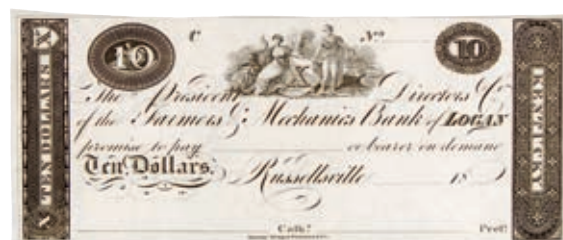 10 C No. 10
The President Directors & Co.
of the Farmers & Mechanics Bank of LOGAN
promise to pay or bearer on demand
Ten Dollars.
Russellville 18
Cash.r Pres.t
X TEN DOLLARS X